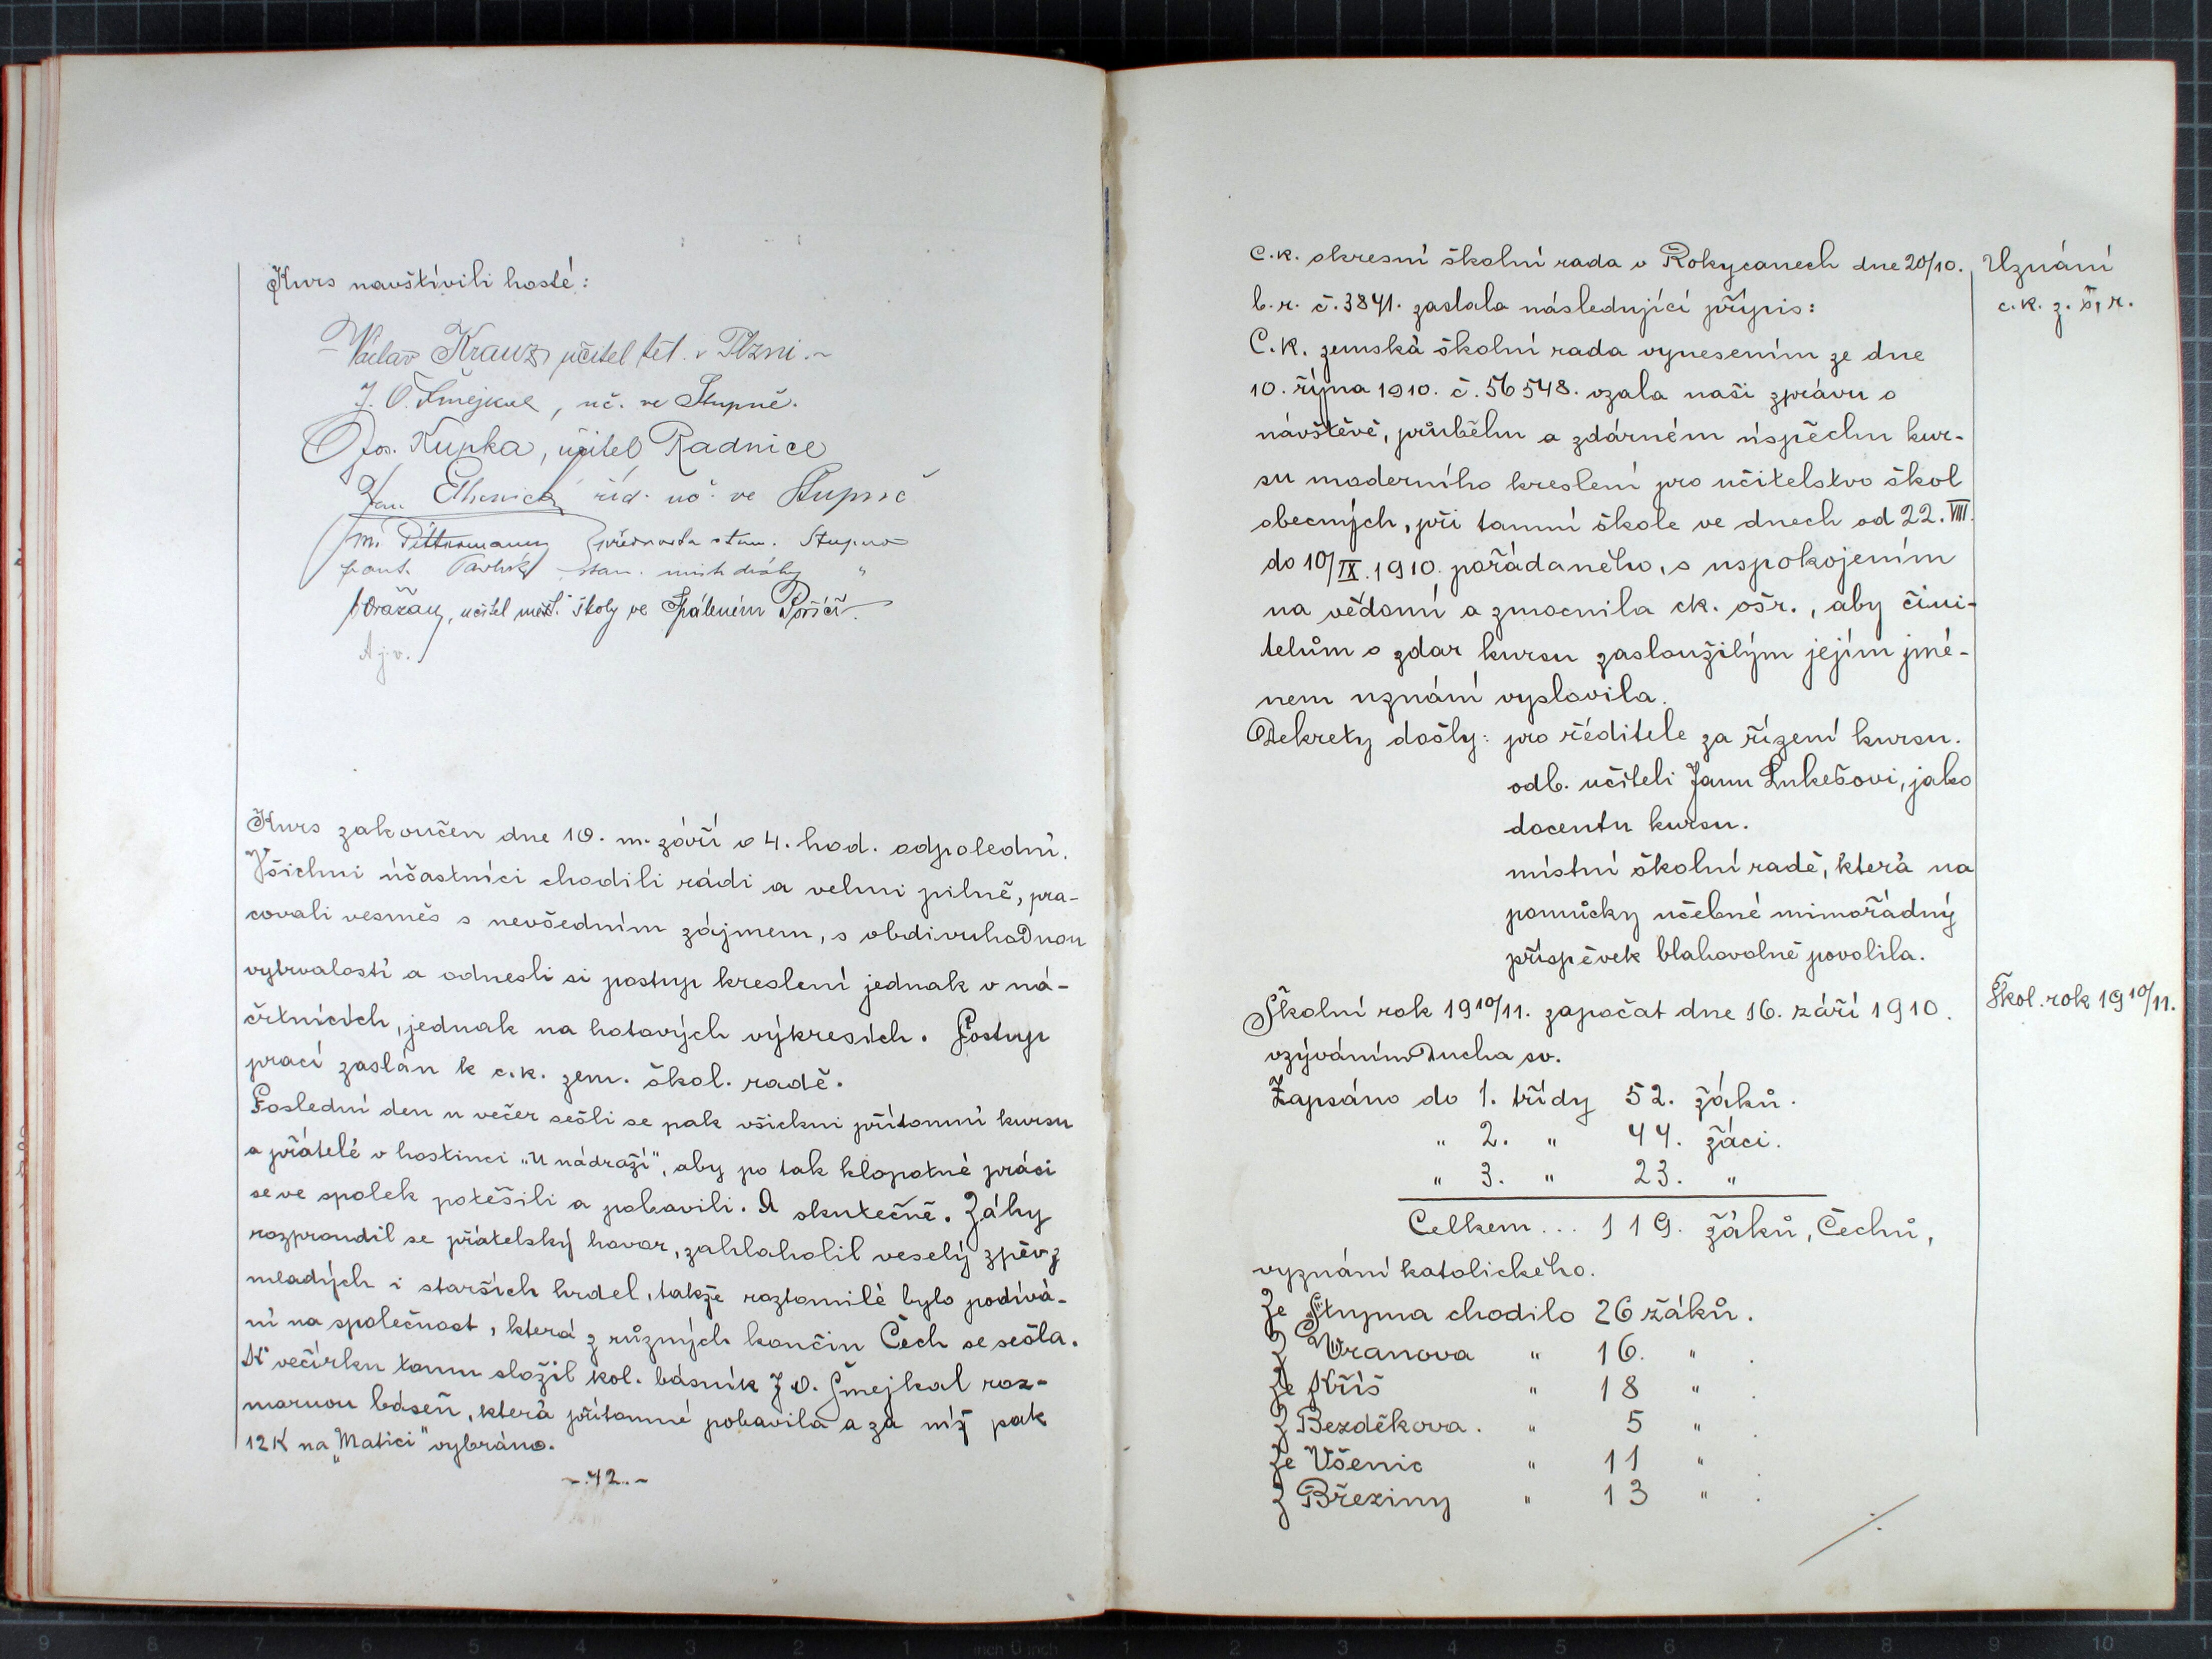 Kurs navštívili hosté:
Václav Krauz, učitel těl. v Plzni.
J. O. Šmejkal, uč. ve Stupně.
Jos. Kupka, učitel Radnice
Jan říd. uč. ve Stupně
přednosta stan. Stupno
Frant. Pavlík stan. mistr dráhy "
učitel měšť. školy ve Spáleném Poříčí.
Kurs zakončen dne 10. m. září o 4. hod. odpolední.
Všichni účastníci chodili rádi a velmi pilně, pra-
covali vesměs s nevšedním zájmem, s obdivuhodnou
vytrvalostí a odnesli si postup kreslení jednak v ná-
črtnících, jednak na hotových výkresích. Postup
prací zaslán k c.k. zem. škol. radě.
Poslední den u večer sešli se pak všickni přítomní kursu
a přátelé v hostinci „U nádraží", aby po tak klopotné práci
se ve spolek potěšili a pobavili. A skutečně. Záhy
rozproudil se přátelský hovor, zahlaholil veselý zpěv z
mladých i starších hrdel, takže roztomilé bylo podívá-
ní na společnost, která z různých končin Čech se sešla.
K večírku tomu složil kol. básník J. O. Šmejkal roz-
marnou báseň, která přítomné pobavila a za níž pak
12 K na „Matici" vybráno.
-.42.-
C.k. okresní školní rada v Rokycanech dne 20/10.
b.r. č. 3841. zaslala následující přípis:
C.k. zemská školní rada vynesením ze dne
10. října 1910. č. 56548. vzala naši zprávu o
návštěvě, průběhu a zdárném úspěchu kur-
su moderního kreslení pro učitelstvo škol
obecných, při tamní škole ve dnech od 22. VIII.
do 10/IX. 1910. pořádaného, s uspokojením
na vědomí a zmocnila ck. ošr., aby čini-
telům o zdar kursu zasloužilým jejím jmé-
nem uznání vyslovila.
Dekrety došly: pro ředitele za řízení kursu.
odb. učiteli Janu Lukešovi, jako
docentu kursu.
místní školní radě, která na
pomůcky učebné mimořádný
příspěvek blahovolně povolila.
Školní rok 1910/11. započat dne 16. září 1910.
vzýváním Ducha sv.
Zapsáno do 1. třídy 52. žáků.
" 2. " 44. žáci.
" 3. " 23. "
Celkem... 119. žáků, Čechů,
vyznání katolického.
Ze Stupna chodilo 26 žáků.
Z Vranova " 16. " .
Ze Kříš " 18 " .
Z Bezděkova. " 5 " .
Ze Všenic " 11 " .
Z Březiny " 13 " .
Uznání
c.k. z. š. r.
Škol. rok 1910/11.